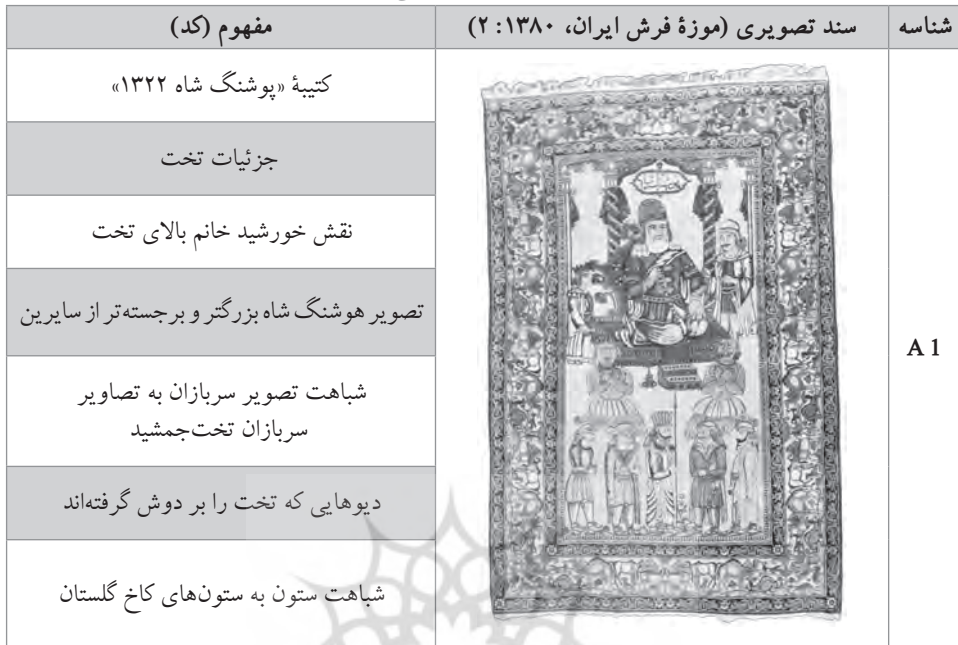 شناسه
سند تصویری (موزهٔ فرش ایران، ۱۳۸۰: ۲)
مفهوم (کد)
A 1
کتیبهٔ «پوشنگ شاه ۱۳۲۲»
جزئیات تخت
نقش خورشید خانم بالای تخت
تصویر هوشنگ شاه بزرگتر و برجسته‌تر از سایرین
شباهت تصویر سربازان به تصاویر
سربازان تخت‌جمشید
دیوهایی که تخت را بر دوش گرفته‌اند
شباهت ستون به ستون‌های کاخ گلستان